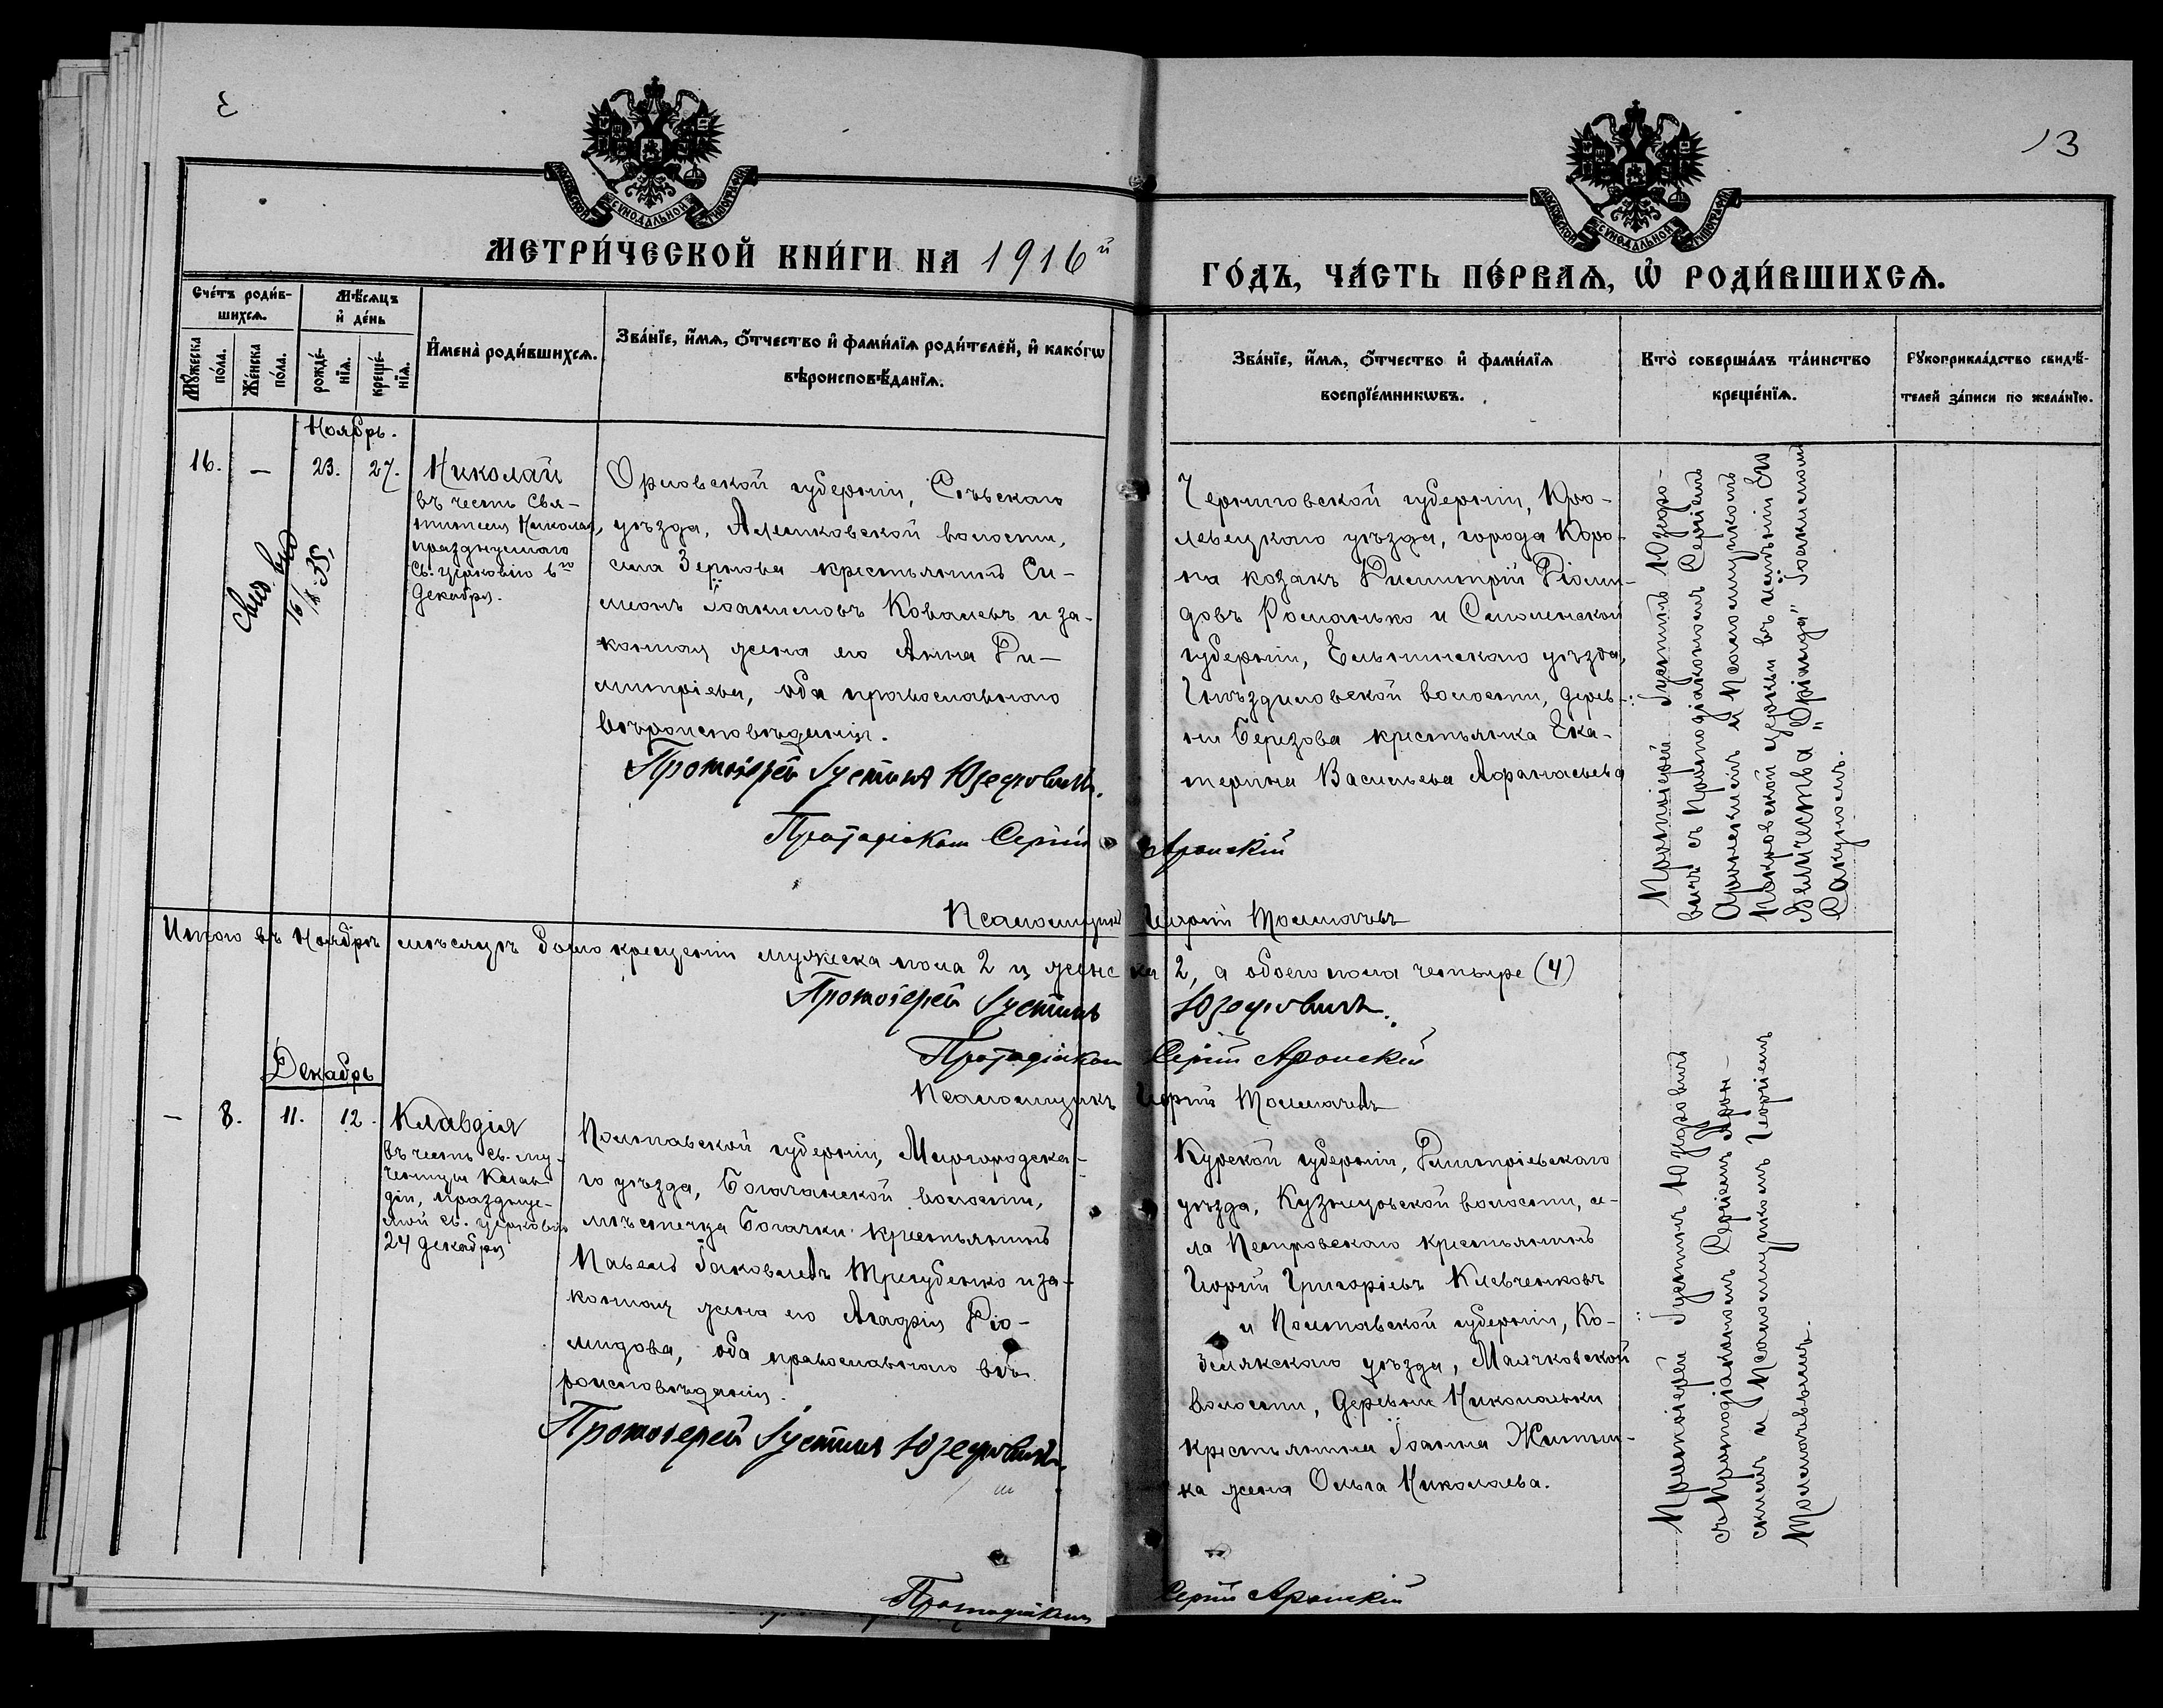 13
МОСКОВСКОЙ СѴНОДАЛЬНОЙ ТИПОГРАФІИ
МОСКОВСКОЙ СѴНОДАЛЬНОЙ ТИПОГРАФІИ
МЕТРИ́ЧЕСКОЙ КНИ́ГИ НА 1916й
ГО́ДЪ, ЧА́СТЬ ПЕ́РВАѦ, Ѡ҆ РОДИ́ВШИХСѦ.
Сче́тъ роди́в-
шихсѧ.
Мꙋ́жеска
по́ла.
Же́нска
по́ла.
Мѣ́сѧцъ
и҆ де́нь
рожде́-
нїѧ.
креще́-
нїѧ.
И҆мена̀ роди́вшихсѧ.
Зва́нїе, и҆́мѧ, ѻ҆́тчество и҆ фами́лїѧ роди́телей, и҆ како́гѡ
вѣроисповѣ́данїѧ.
Зва́нїе, и҆́мѧ, ѻ҆́тчество и҆ фами́лїѧ
воспрїе́мникѡвъ.
Кто̀ соверша́лъ та́инство
креще́нїѧ.
Рꙋкоприкла́дство свидѣ́-
телей за́писи по жела́нїю.
Ноябрь.
16.
—
23.
27.
16/X 35
Николай
въ честь Свя-
тителя Николая,
празднуемаго
Св. церковію 6го
декабря.
Орловской губерніи, Сѣвскаго
уѣзда, Алешковской волости,
села Зернова крестьянинъ Си-
меонъ Іоакимовъ Ковалевъ и за-
конная жена его Анна Ди-
митріева, оба православнаго
вѣроисповѣданія.
Протоіерей Іустинъ Юзефовичъ.
Протодіаконъ Сергій Аронскій
Псаломщикъ Георгій Толмачевъ
Черниговской губерніи, Кро-
левецкаго уѣзда, города Коро-
па козакъ Димитрій Діоми-
довъ Романько и Смоленской
губерніи, Ельнинскаго уѣзда,
Гнѣздиловской волости, дерев-
ни Березова крестьянка Ека-
терина Васильева Афанасьева
Протоіерей Іустинъ Юзефо-
вичъ съ Протодіакономъ Сергіемъ
Аронскимъ и Псаломщикомъ
Покровской церкви въ имѣніи Его
Величества „Оріанда" Іоакимомъ
Сакуномъ.
Итого въ Ноябрѣ мѣсяцѣ было крещеній мужеска пола 2 и женска 2, а обоего пола четыре (4)
Протоіерей Іустинъ Юзефовичъ.
Протодіаконъ Сергій Аронскій
Псаломщикъ Георгій Толмачевъ
Декабрь
—
8.
11.
12.
Клавдія
въ честь св. му-
ченицы Клав-
діи, празднуе-
мой св. церковію
24 декабря
Полтавской губерніи, Миргородска-
го уѣзда, Богачанской волости,
мѣстечка Богачки крестьянинъ
Павелъ Іаковлевъ Трегубенко и за-
конная жена его Агафія Діо-
мидова, оба православнаго вѣ-
роисповѣданія.
Протоіерей Іустинъ Юзефовичъ.
Протодіаконъ Сергій Аронскій
Курской губерніи, Дмитріевскаго
уѣзда, Кузнецовской волости, се-
ла Петровскаго крестьянинъ
Георгій Григоріевъ Клевченковъ
и Полтавской губерніи, Ко-
беляк­скаго уѣзда, Маячковской
волости, деревни Николаевки
крестьянина Іоанна Житни-
ка жена Ольга Николаева.
Протоіерей Іустинъ Юзефовичъ
съ Протодіакономъ Сергіемъ Арон-
скимъ и Псаломщикомъ Георгіемъ
Толмачевымъ.